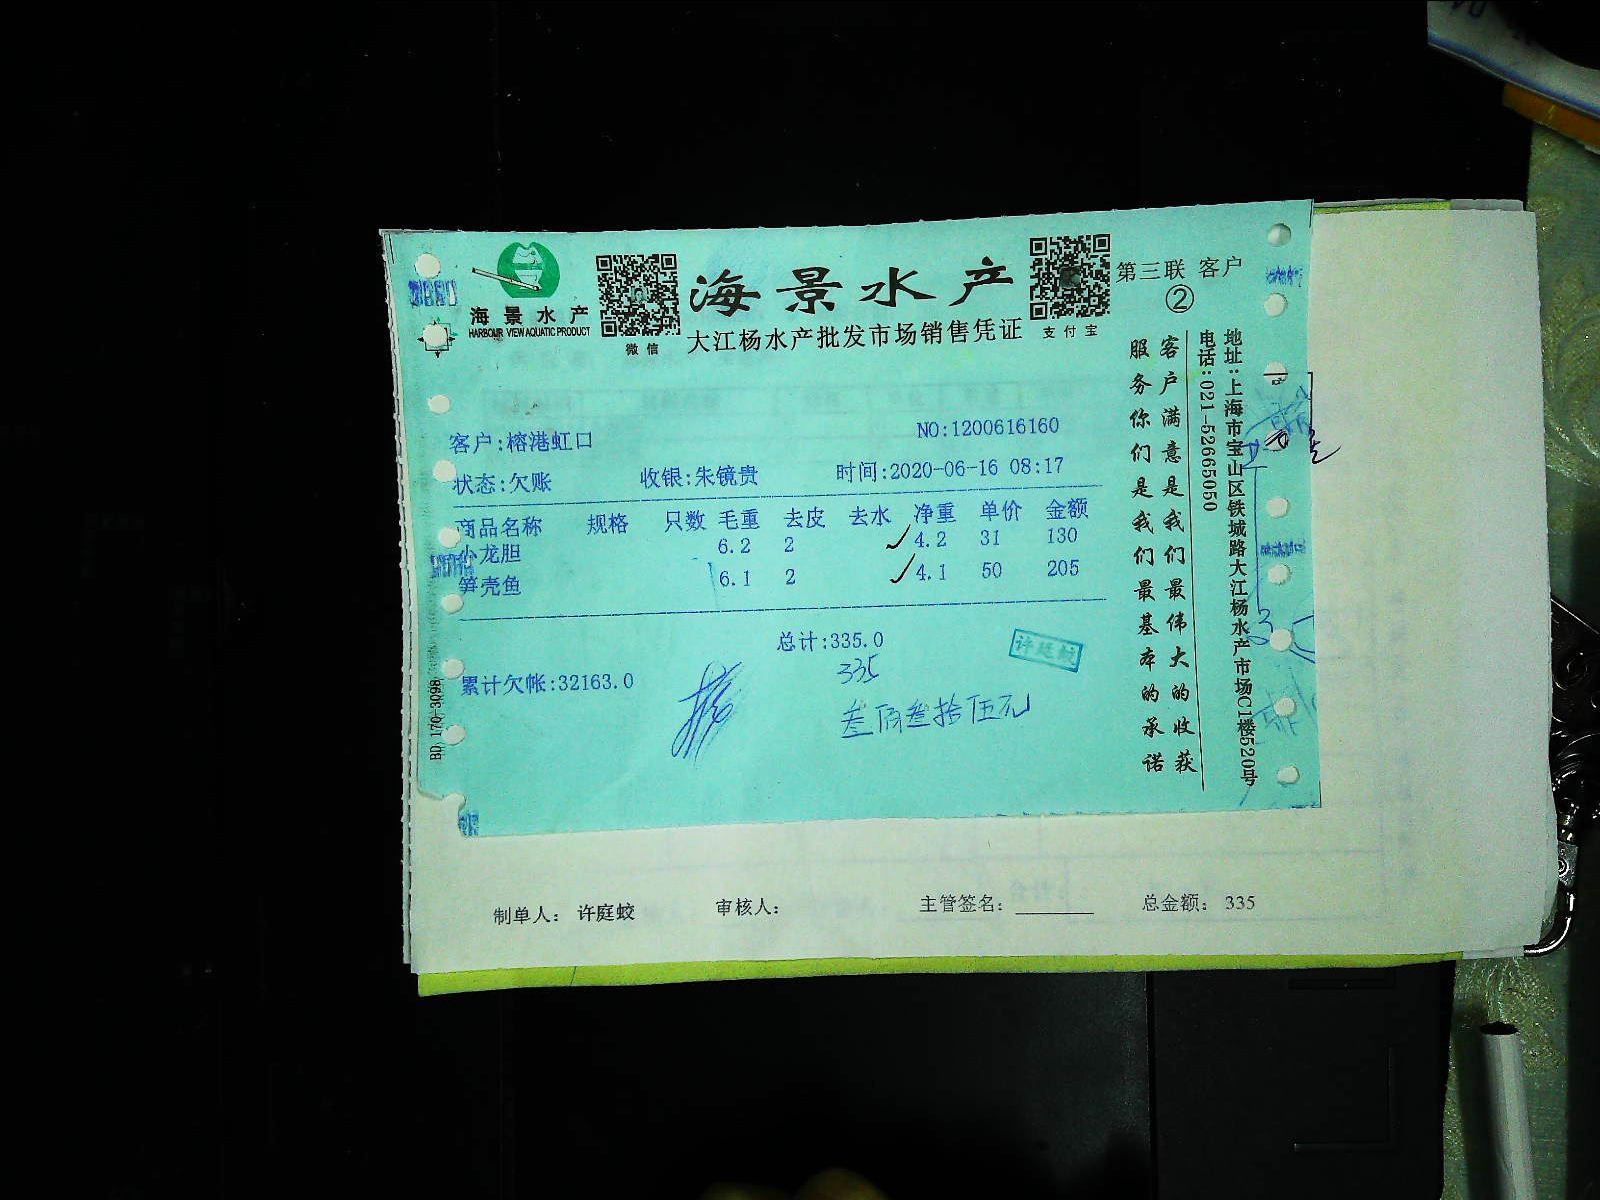 海景水产
HARBOUR VIEW AQUATIC PRODUCT
微信
海景水产
大江杨水产批发市场销售凭证
支付宝
第三联 客户
②
客户:榕港虹口
NO:1200616160
状态:欠账 收银:朱镜贵 时间:2020-06-16 08:17
商品名称 规格 只数 毛重 去皮 去水 净重 单价 金额
小龙胆 6.2 2 4.2 31 130
笋壳鱼 6.1 2 4.1 50 205
总计:335.0
335
累计欠帐:32163.0
叁佰叁拾伍元
客户满意是我们最伟大的收获
服务你们是我们最基本的承诺
地址:上海市宝山区铁城路大江杨水产市场C1楼520号
电话:021-52665050
BD 170-3098
制单人: 许庭蛟 审核人: 主管签名: 总金额: 335